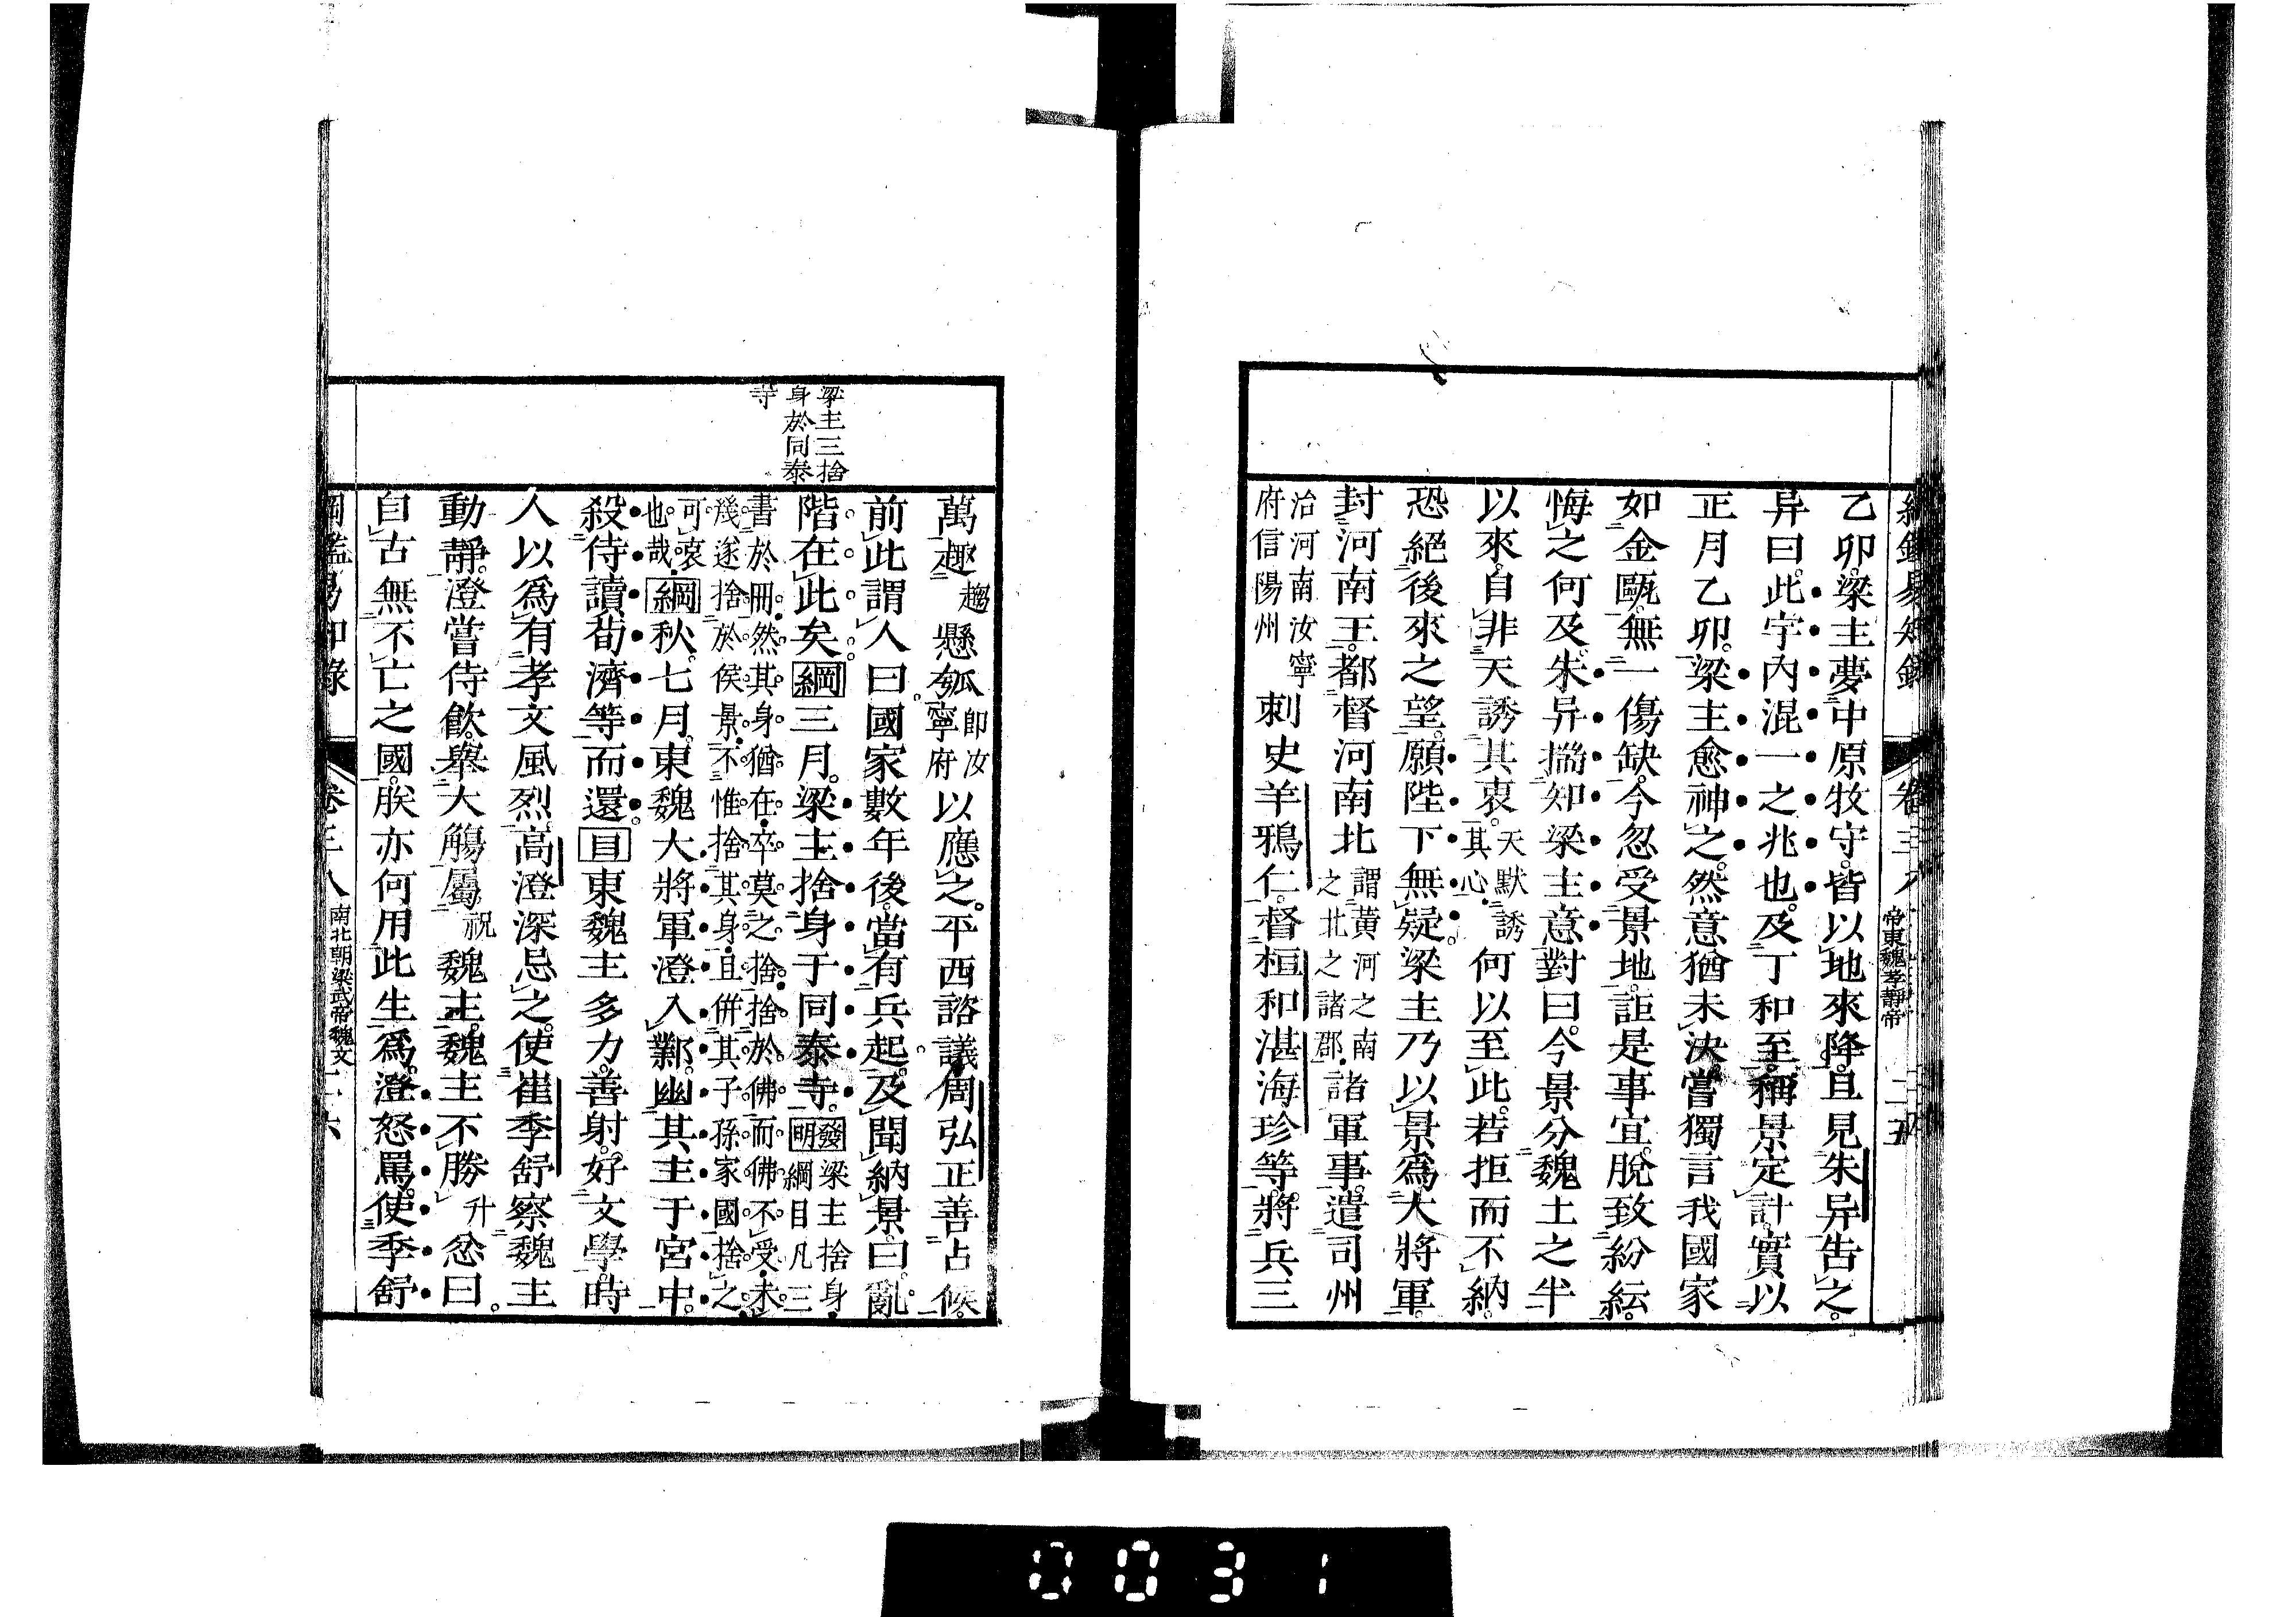 乙卯梁主夢中原牧守皆以地來降旦見朱异告之
异曰此宇內混一之兆也及丁和至稱景定計實以
正月乙卯梁主愈神之然意猶未決嘗獨言我國家
如金甌無一傷缺今忽受景地詎是事宜脫致紛紜
悔之何及朱异揣知梁主意對曰今景分魏土之半
以來自非天誘其衷天默誘其心何以至此若拒而不納
恐絕後來之望願陛下無疑梁主乃以景爲大將軍
封河南王都督河南北謂黃河之南之北之諸郡諸軍事遣司州
治河南汝寧府信陽州刺史羊鴉仁督桓和湛海珍等將兵三
帝東魏孝靜帝
二五
梁主三捨
身於同泰
寺
萬趣趨懸瓠即汝寧府以應之平西諮議周弘正善占候
前此謂人曰國家數年後當有兵起及聞納景曰亂
階在此矣綱三月梁主捨身于同泰寺發明梁主捨身綱目凡三
書於冊然其身猶在卒莫之捨捨於佛而佛不受未
幾遂捨於侯景不惟捨其身且併其子孫家國捨之
可哀也哉綱秋七月東魏大將軍澄入鄴幽其主于宮中
殺侍讀荀濟等而還目東魏主多力善射好文學時
人以爲有孝文風烈高澄深忌之使崔季舒察魏主
動靜澄嘗侍飲舉大觴屬祝魏主魏主不勝升忿曰
自古無不亡之國朕亦何用此生爲澄怒罵使季舒
南北朝梁武帝魏文
0031